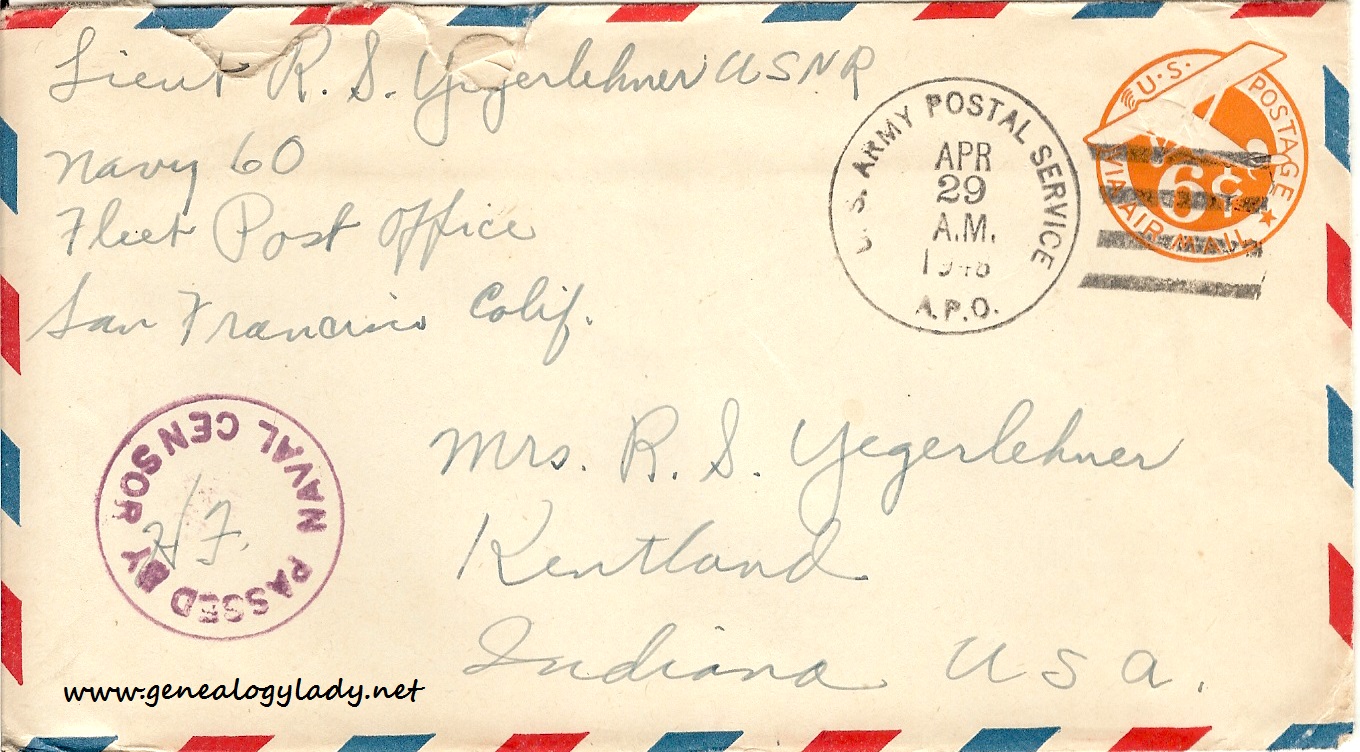 Lieut R. S. Yegerlehner USNR
Navy 60
Fleet Post Office
San Francisco Calif.
U.S. ARMY POSTAL SERVICE
APR
29
A.M.
A.P.O.
U.S. POSTAGE
6¢
VIA AIR MAIL
PASSED BY NAVAL CENSOR
Mrs. R. S. Yegerlehner
Kentland
Indiana USA.
www.genealogylady.net